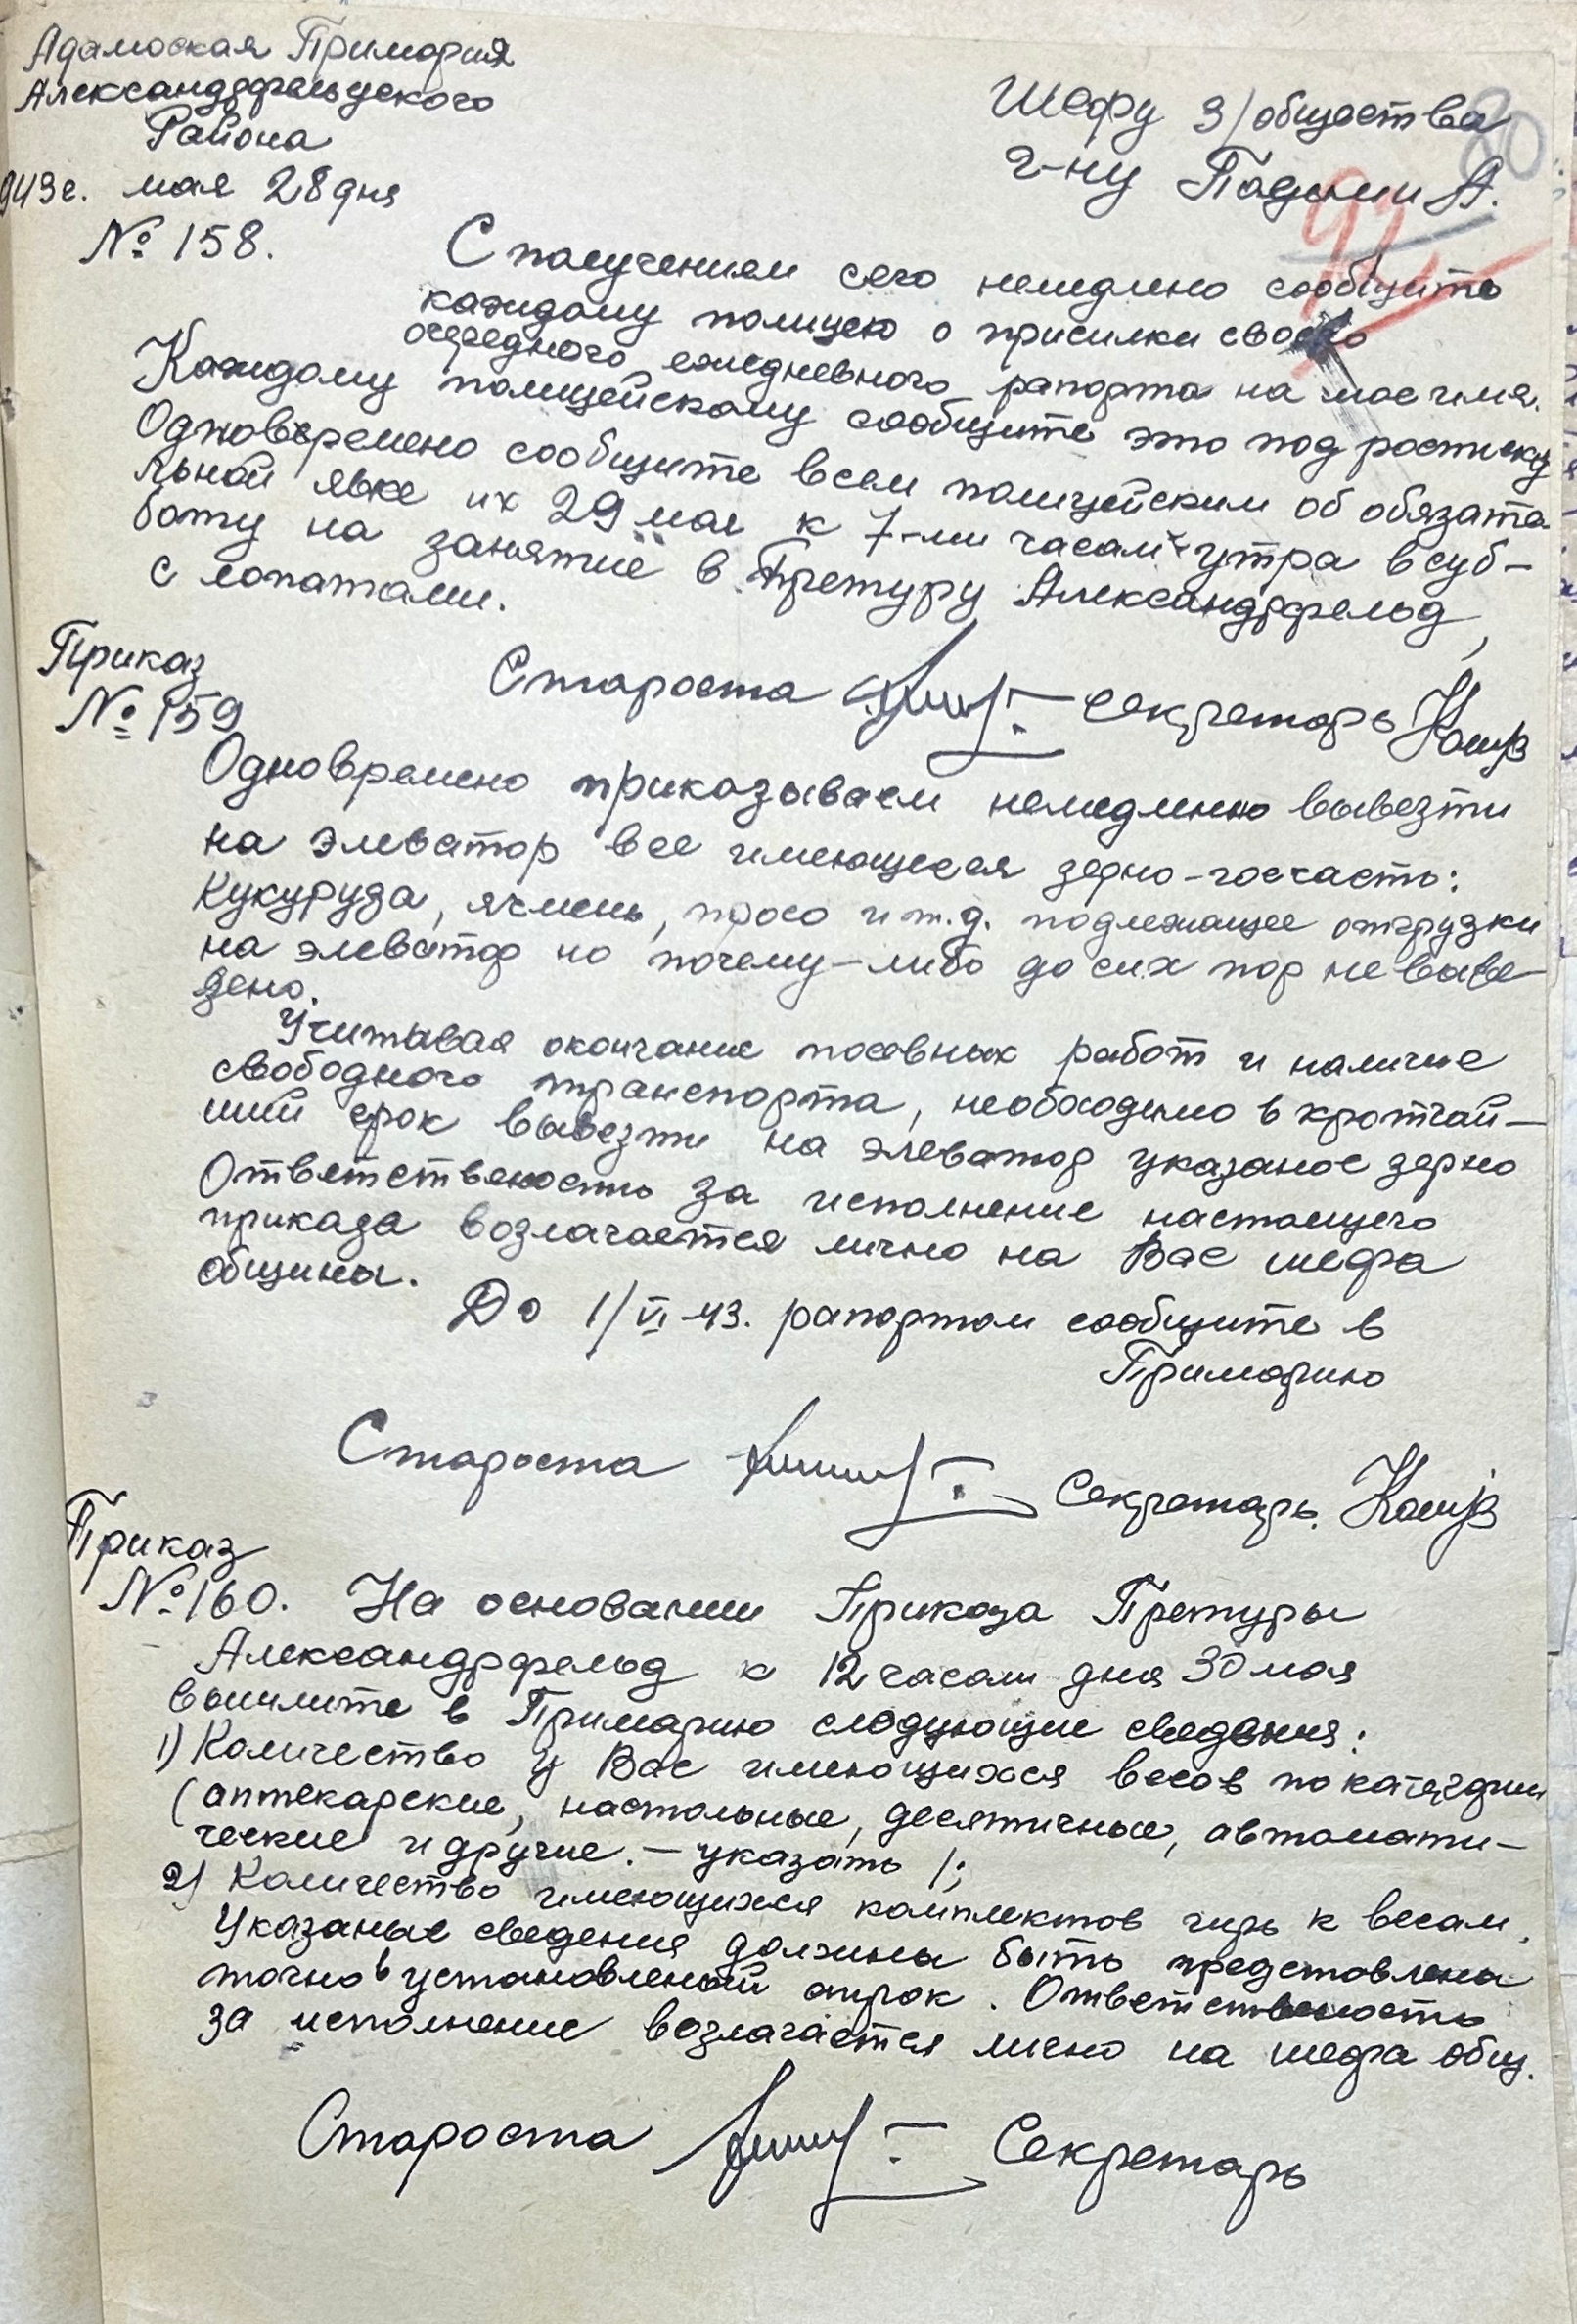 Адамовская Примария
Александрфельдского
Района
943г. мая 28 дня
№ 158.
80
Шефу З/общества
г-ну Падыми А.
92
С получением сего немедлено сообщить
каждому полицею о присилки своего
очередного ежедневного рапорта на мое имя.
Каждому полицейскому сообщите это под росписку
Одновремено сообщите всем полицейским об обязате
льной явке их 29 мая к 7-ми часам утра в суб-
боту на занятие в Претуру Александрфельд,
с лопатами.
Староста Секретарь
Приказ
№ 159
Одновремено приказываем немедлено вывезти
на элеватор все имеющееся зерно-госчасть:
Кукуруза, ячмень, просо и т.д. подлежащее отгрузки
на элеватор но почему-либо до сих пор не выве-
зено.
Учитывая окончание посевных работ и наличие
свободного транспорта, необходимо в кротчай-
ший срок вывезти на элеватор указаное зерно
Ответственость за исполнение настоящего
приказа возлагается лично на Вас шефа
общины.
До 1/VI-43. рапортом сообщите в
Примарию
Староста Секретарь
Приказ
№ 160. На основании Приказа Претуры
Александрфельд к 12 часам дня 30 мая
вышлите в Примарию следующие сведения:
1) Количество у Вас имеющихся весов по категории
(аптекарские, настольные, десятичные, автомати-
ческие и другие. - указать);
2) Количество имеющихся комплектов гирь к весам.
Указаные сведения должны быть представлены
точно в установленый строк. Ответственость
за исполнение возлагается лично на шефа общ.
Староста Секретарь